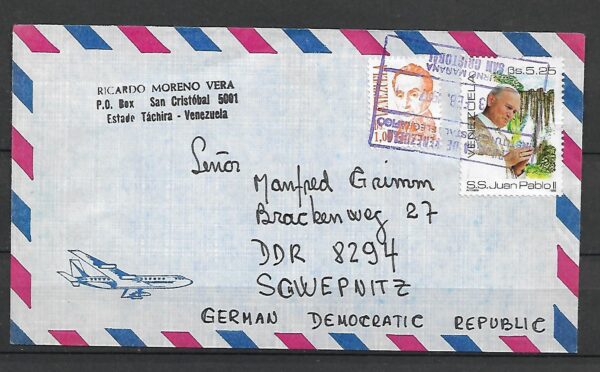 RICARDO MORENO VERA
P.O. Box San Cristóbal 5001
Estado Táchira - Venezuela
SAN CRISTOBAL
Bs.5.25
VENEZUELA
S.S. Juan Pablo II
Señor
Manfred Grimm
Brackenweg 27
DDR 8294
SGWEPNITZ
GERMAN DEMOCRATIC REPUBLIC